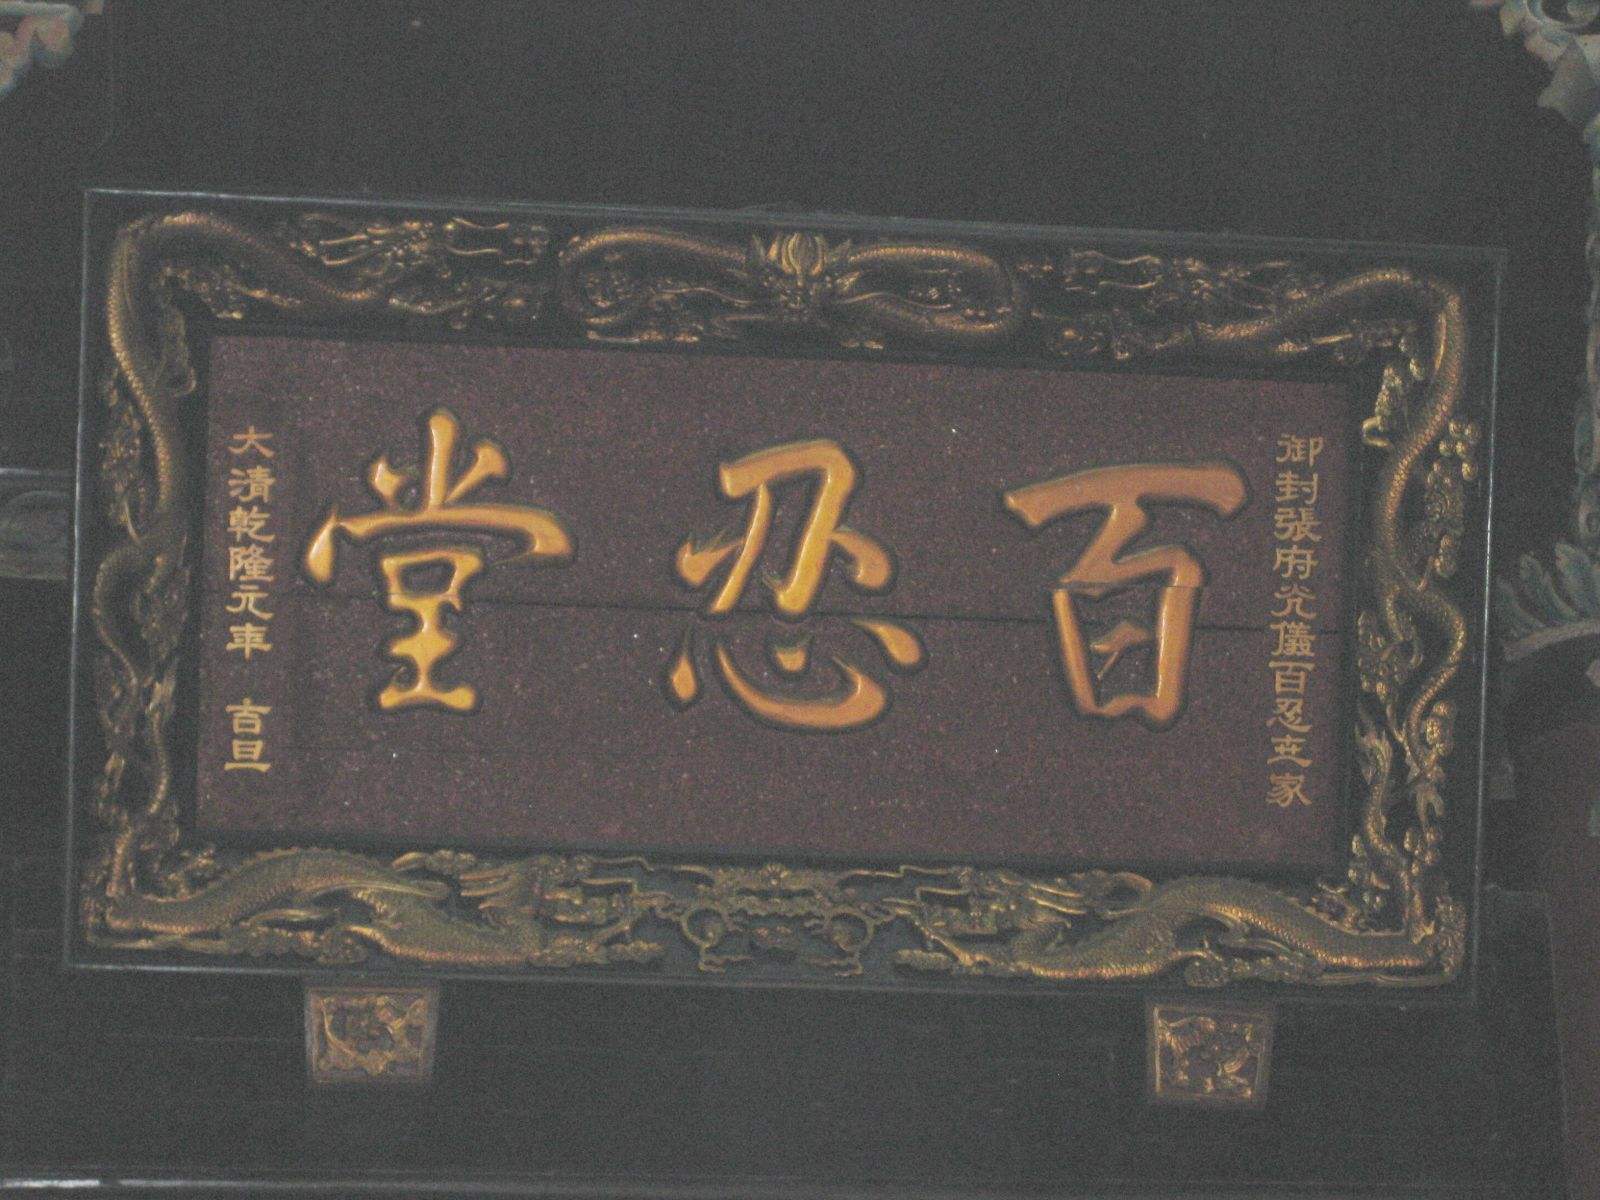 御封張府光儀百忍立家
百忍堂
大清乾隆元年 吉旦